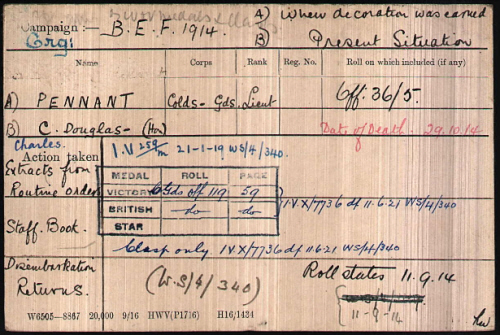 A) When decoration was earned
Campaign :- B.E.F. 1914.
Orgl
B) Present Situation
Name Corps Rank Reg. No. Roll on which included (if any)
A) PENNANT Colds- Gds. Lieut Off. 36/5.
B) C. Douglas- (Hon) Date of Death. 29.10.14
Charles.
Action taken 21-1-19 WS/4/340.
Extracts from
Routine orders
MEDAL ROLL PAGE
VICTORY Gds off 119 59
BRITISH do do
STAR
I.V.X/7736 df 11.6.21 WS/4/340
Staff. Book.
Clasp only I.V.X/7736 df 11.6.21 WS/4/340
Disembarkation
Returns.
(W.S/4/340)
Roll states 11.9.14
11-9-14
W6505—8867 20,000 9/16 HWV(P1716) H16/1434